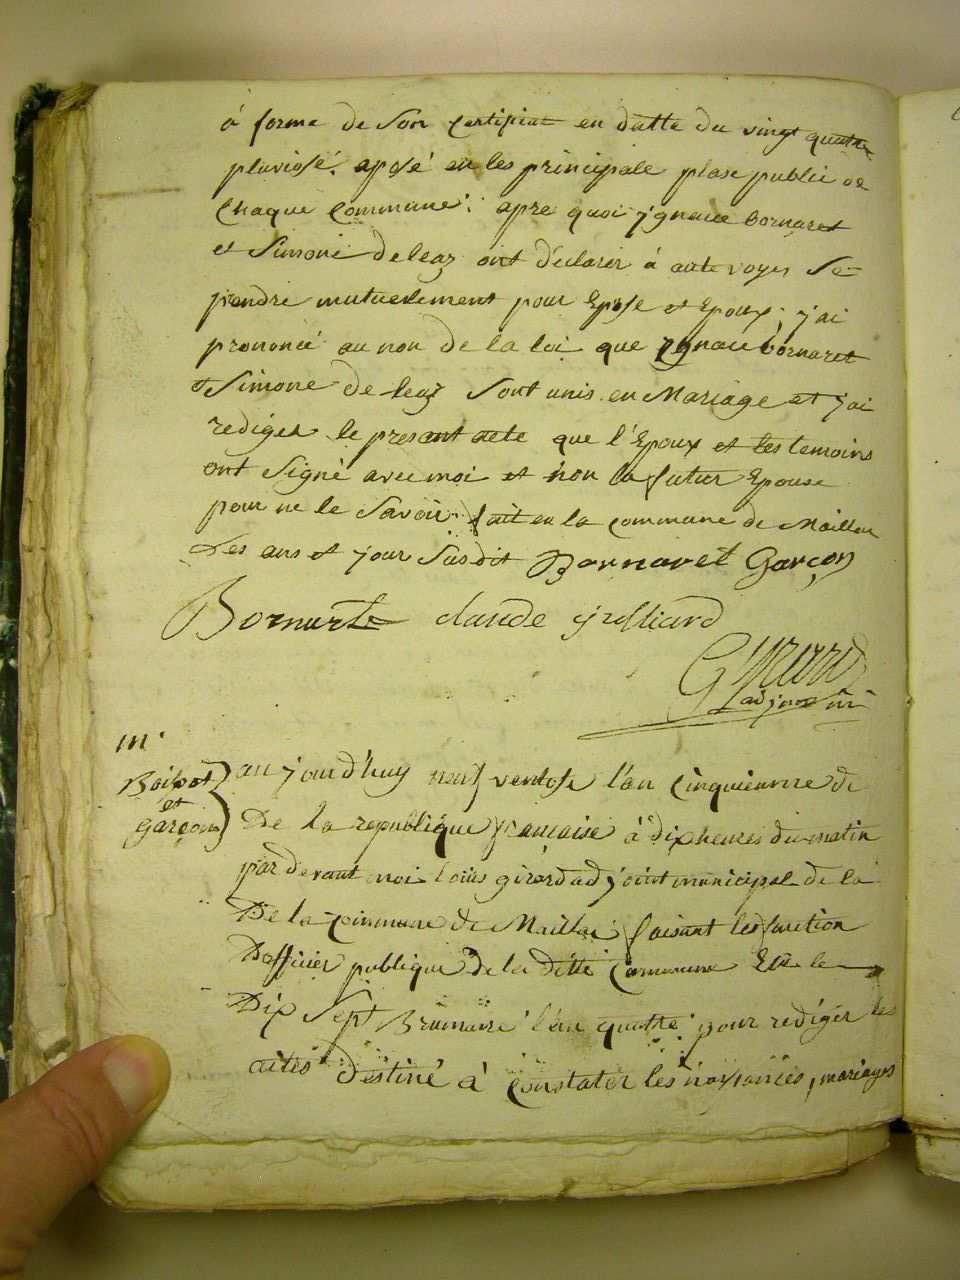 á forme de Son Certifiat en datte du vingt quattre
pluviose. aposé en les principale plase public de
Chaque Commune; apre quoi ygnace bornaret
et Simone deleaz ont déclarer á aute voyes Se
prendre mutuellement pour Epose et Epoux, j'ai
prononcé au non de la loi que ygnace bornaret
et Simone de leaz Sont unis en Mariage et j'ai
rediger le present acte que l'Epoux et les temoins
ont Signé avec moi et non la futur Epouse
pour ne le Savoir fait en la Commune de Maillat
Les ans et jour Susdit Bornaret Garçon
Bornaret Claude julliard
Girard
adjoint
m.
Boisot
et
Garçon
aujourd'huy neuf ventose l'an Cinquieme de
De la republique francaise á dix heures du matin
par devant moi louis girard adjoint municipal de la
De la Commune de Maillat, faisant les fonction
Dofficier publique de la ditte Commune Elu le
Dix Sept Brumaire l'an quattre pour rediger les
actes destiné á Constater les naissances, mariages